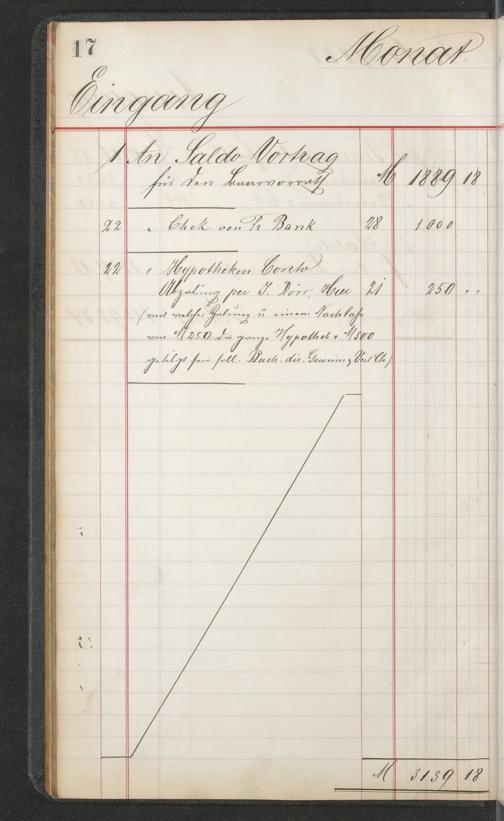 17
Monat
Eingang
1 An Saldo Vortrag
für den Baarvorrath M 1889 18
22 " Chek von Fr Bank 28 1000
22 " Hypotheken Conto
Abzalung per J. Dörr, 21 250 "
(mit welcher Zalung u. einem Nachlaß
von M 250 die ganze Hypothek v. M 500
getilgt sein soll.
M 3139 18